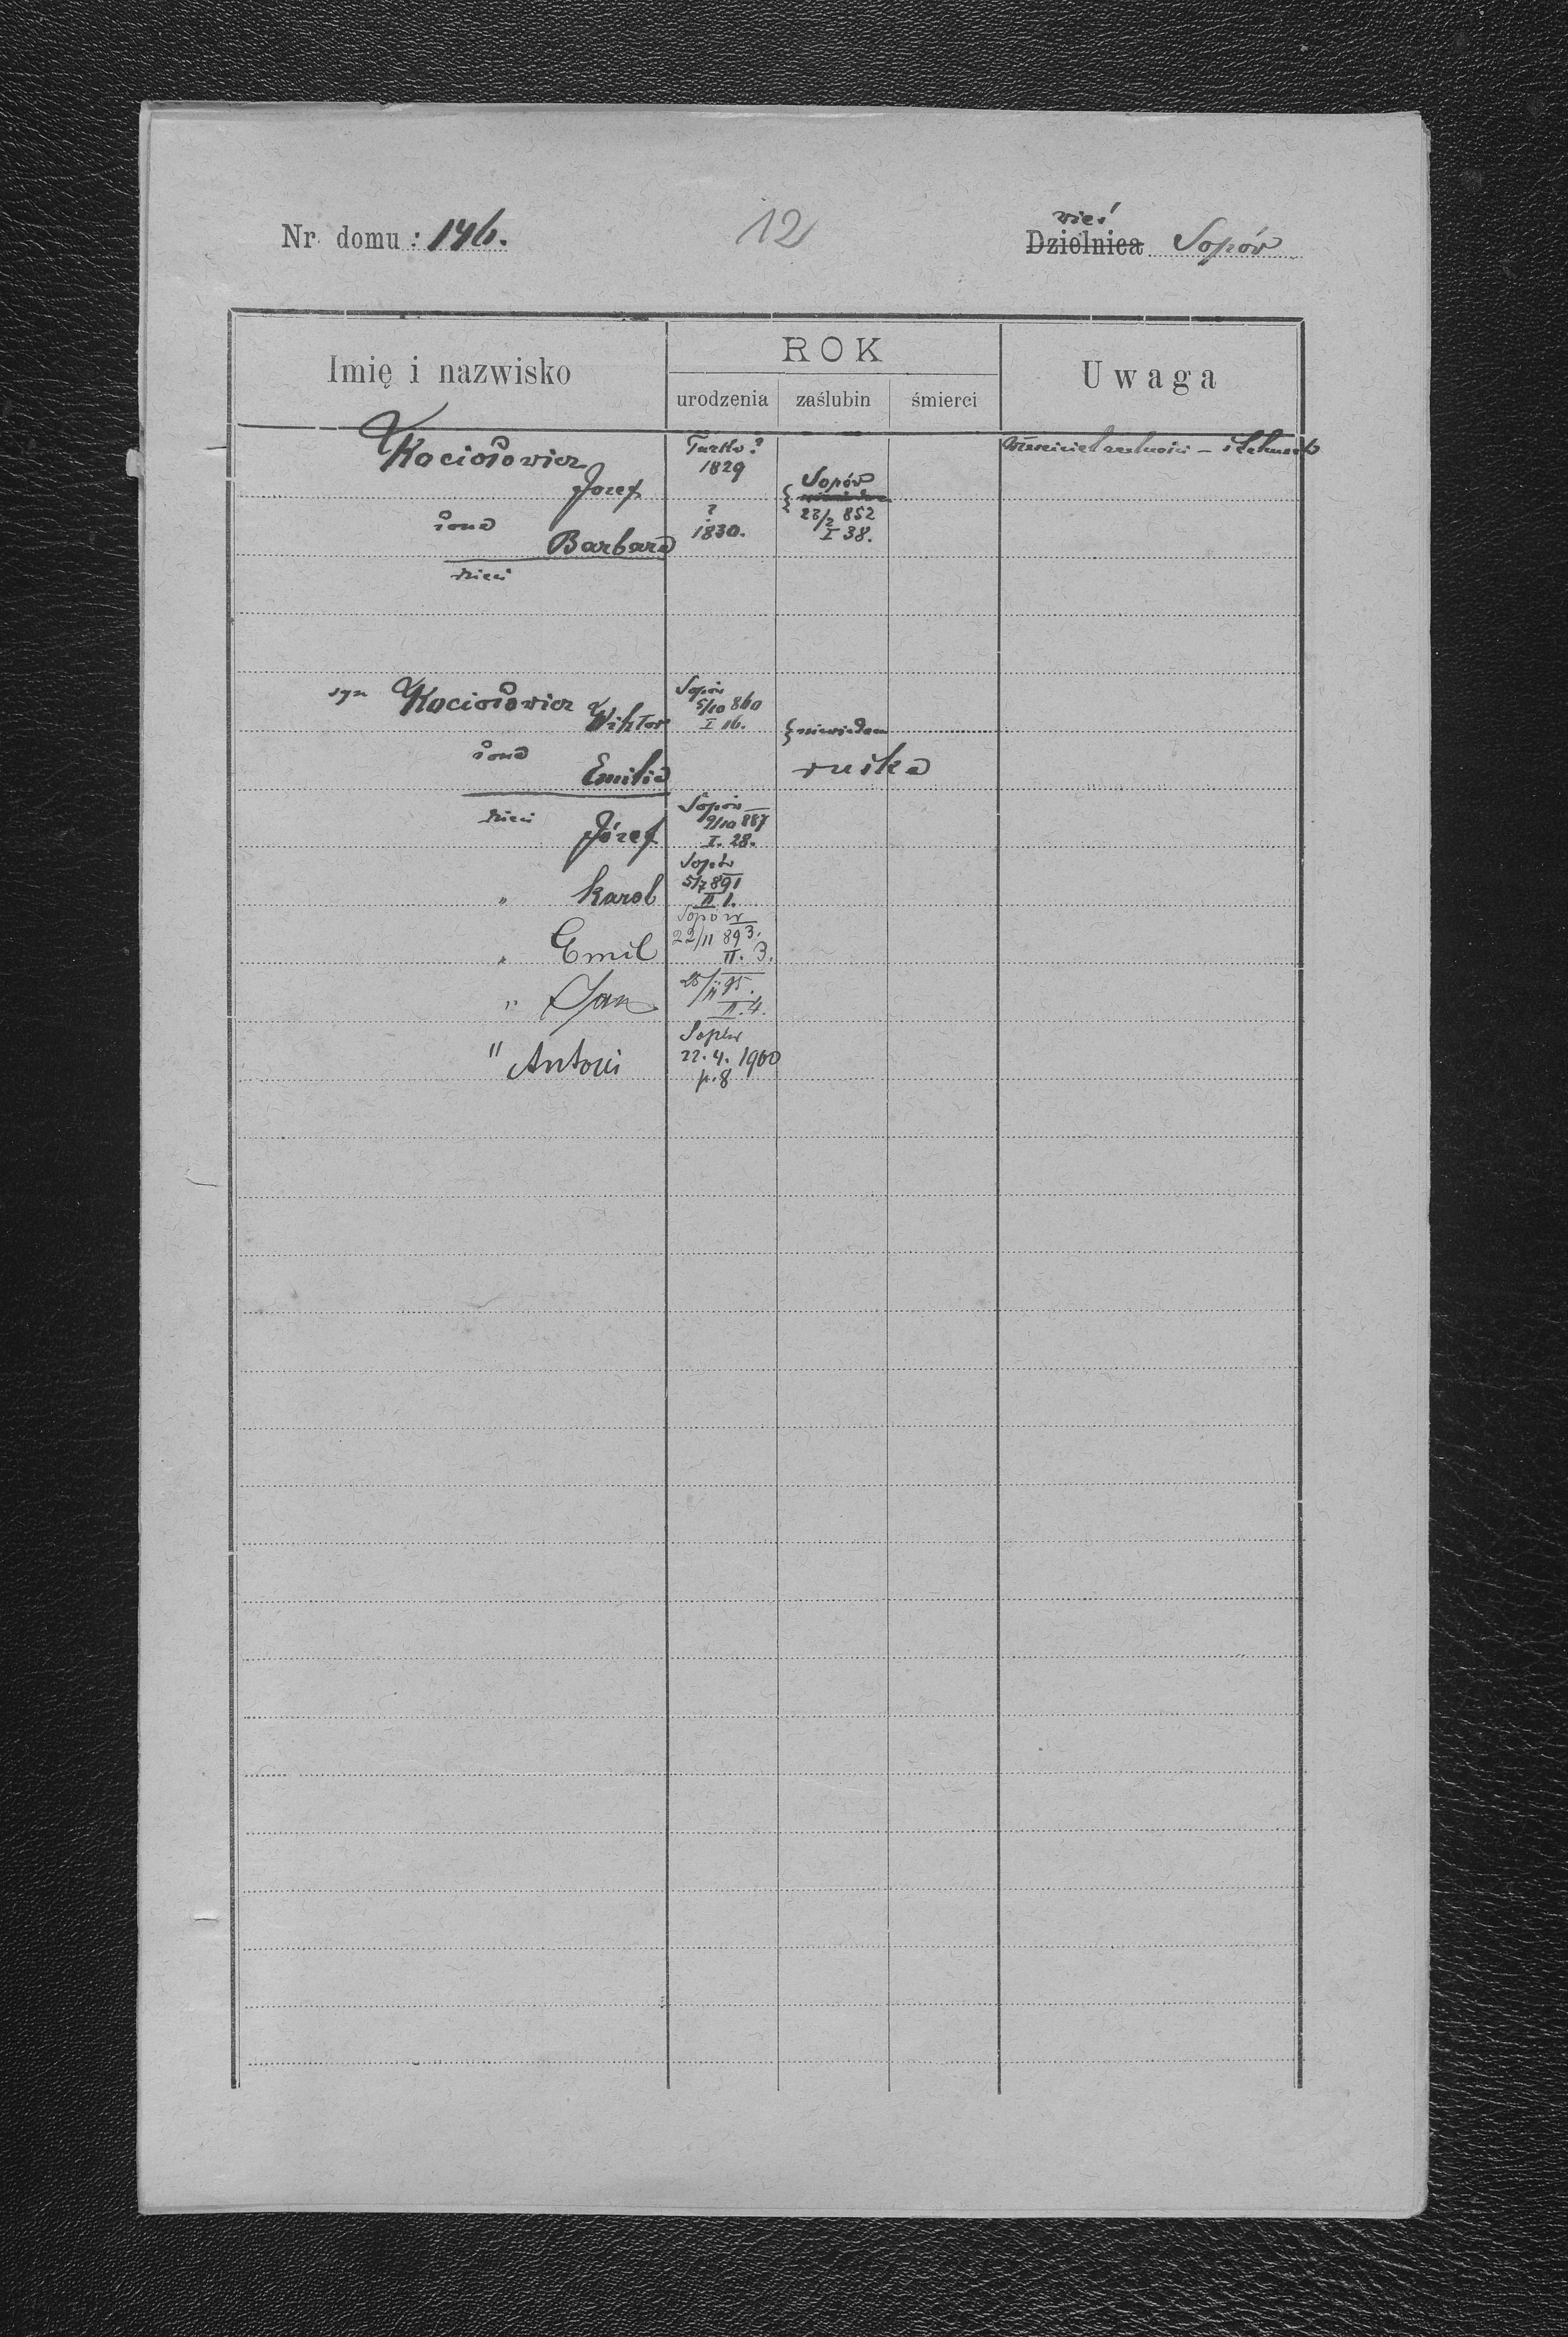 Nr domu : 146.
12
wieś
Dzielnica Sopów
Imię i nazwisko
ROK
urodzenia zaślubin śmierci
Uwaga
Kociołowicz Turka?
1829
Józef
Sopów
żona ? 23/2 852
Barbara 1830. I 38.
dzieci
syn Kociołowicz Sopów
Wiktor 5/10 860
I 16. niewiadom
żona
Emilia ruska
dzieci Józef Sopów
9/10 887
I. 28.
" Karol Sopów
5/7 891
II 1.
" Emil Sopów
22/11 893.
II. 3.
" Jan 25/11 95.
II. 4.
" Antoni Sopów
22. 4. 1900
p. 8